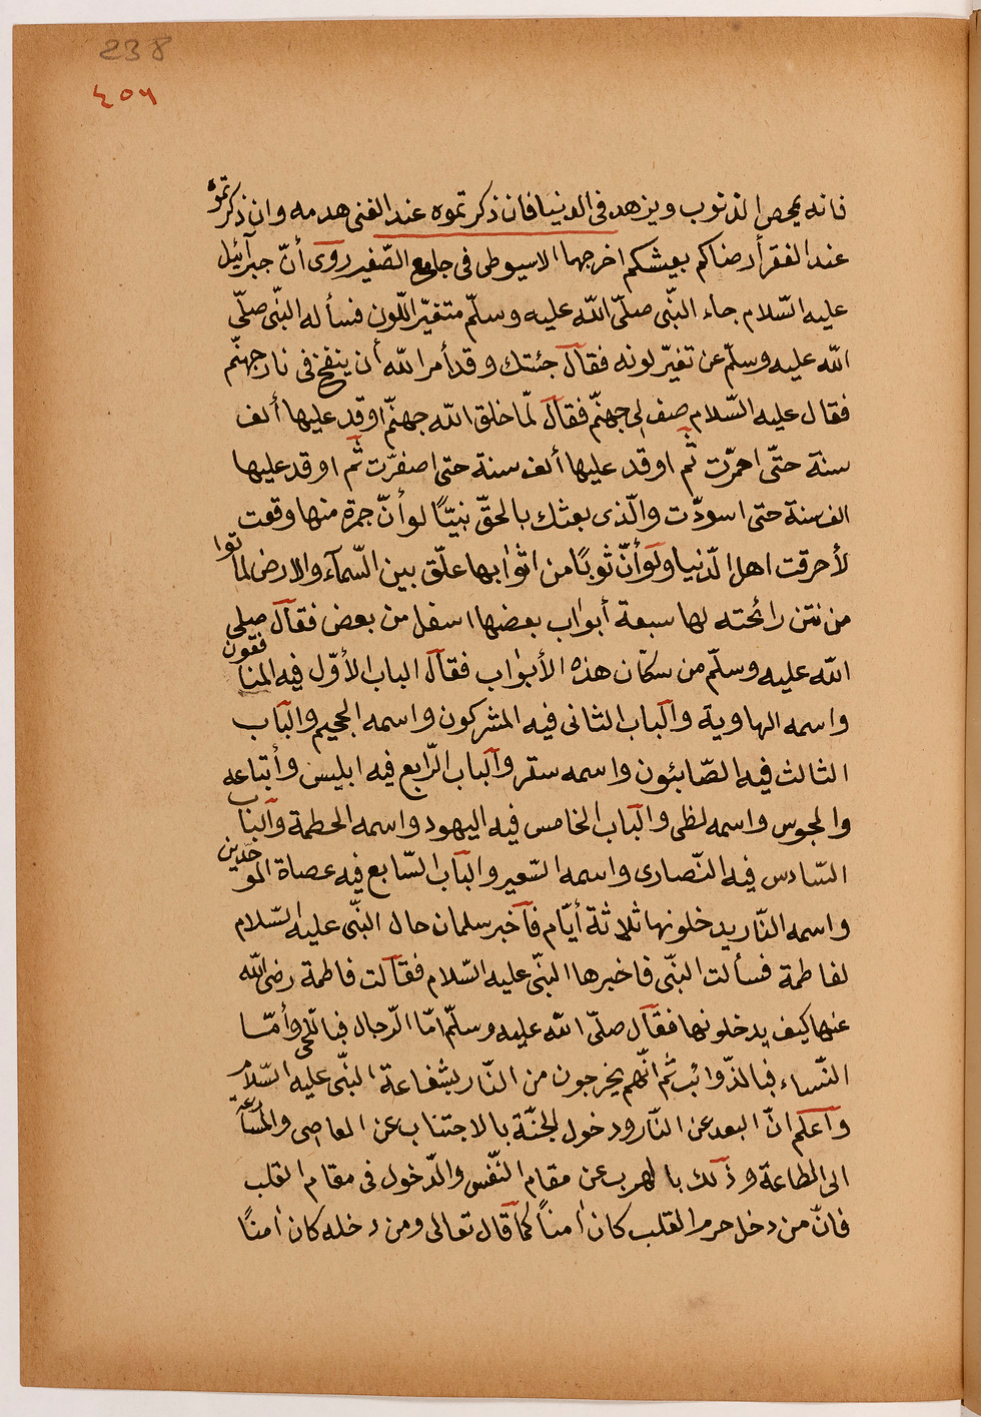 238
٤٥٦
فانه يمحص الذنوب ويزهد فى الدنيا فان ذكرتموه عند الغنى هدمه وان ذكرتموه
عند الفقر أرضاكم بعيشكم اخرجها الاسيوطى فى جامع الصّغير روى أنّ جبرآئيل
عليه السّلام جاء النّبى صلّى اللّه عليه وسلّم متغيّر اللّون فسأله النّبى صلّى
اللّه عليه وسلّم عن تغيّر لونه فقال جئتك وقد أمر اللّه أن ينفخ فى نار جهنّم
فقال عليه السّلام صف لى جهنّم فقال لمّا خلق اللّه جهنّم اوقد عليها ألف
سنة حتّى احمرّت ثم اوقد عليها ألف سنة حتى اصفرّت ثم اوقد عليها
الف سنة حتى اسودّت والّذى بعثك بالحقّ نبيّا لو أنّ جمرة منها وقعت
لأحرقت اهل الدّنيا ولو أنّ ثوبًا من اثوابها علّق بين السّمآء والارض لماتوا
من نتن رائحته لها سبعة أبواب بعضها اسفل من بعض فقال صلى
اللّه عليه وسلّم من سكّان هذه الأبواب فقال الباب الأوّل فيه المنافقون
واسمه الهاوية والباب الثانى فيه المشركون واسمه الجحيم والباب
الثالث فيه الصّابئون واسمه سقر والباب الرّابع فيه ابليس وأتباعه
والمجوس واسمه لظى والباب الخامس فيه اليهود واسمه الحطمة والباب
السّادس فيه النّصارى واسمه السّعير والباب السّابع فيه عصاة الموحّدين
واسمه النّار يدخلونها ثلاثة أيّام فأخبر سلمان حال النّبى عليه السّلام
لفاطمة فسألت النبّى فاخبرها النبّى عليه السّلام فقالت فاطمة رضى اللّه
عنها كيف يدخلونها فقال صلّى اللّه عليه وسلّم امّا الرّجال فباللّحى وأمّا
النّساء فبالذّوائب ثم انّهم يخرجون من النّار بشفاعة النبّى عليه السّلام
واعلم انّ البعد عن النّار ودخول الجنّة بالاجتناب عن المعاصى والمسارعة
الى الطاعة وذلك بالهرب عن مقام النّفس والدّخول فى مقام القلب
فانّ من دخل حرم القلب كان اٰمناً كما قال تعالى ومن دخله كان اٰمنًا